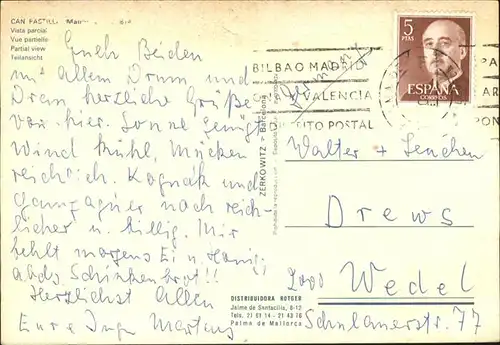 CAN PASTILLA
Vista parcial
Vue partielle
Partial view
Teilansicht
Euch Beiden
mit allem Drum und
Dran herzliche Grüße
von hier. Sonne genügt
Wind kühl. Mücken
reichlich. Kognak und
Champagner noch reich-
licher u. billig. Mir
fehlt morgens Ei u. Honig,
abds Schinkenbrot!!
Herzlichst Allen
Eure Inge Martens
ZERKOWITZ - Barcelona
DISTRIBUIDORA ROTGER
Jaime de Santacilia, 8-12
Tels. 21 61 14 - 21 43 76
Palma de Mallorca
BILBAO MADRID
VALENCIA
DISTRITO POSTAL
5
PTAS
ESPAÑA
CORREOS
Walter + Lenchen
Drews
2000 Wedel
Schulauerstr. 77